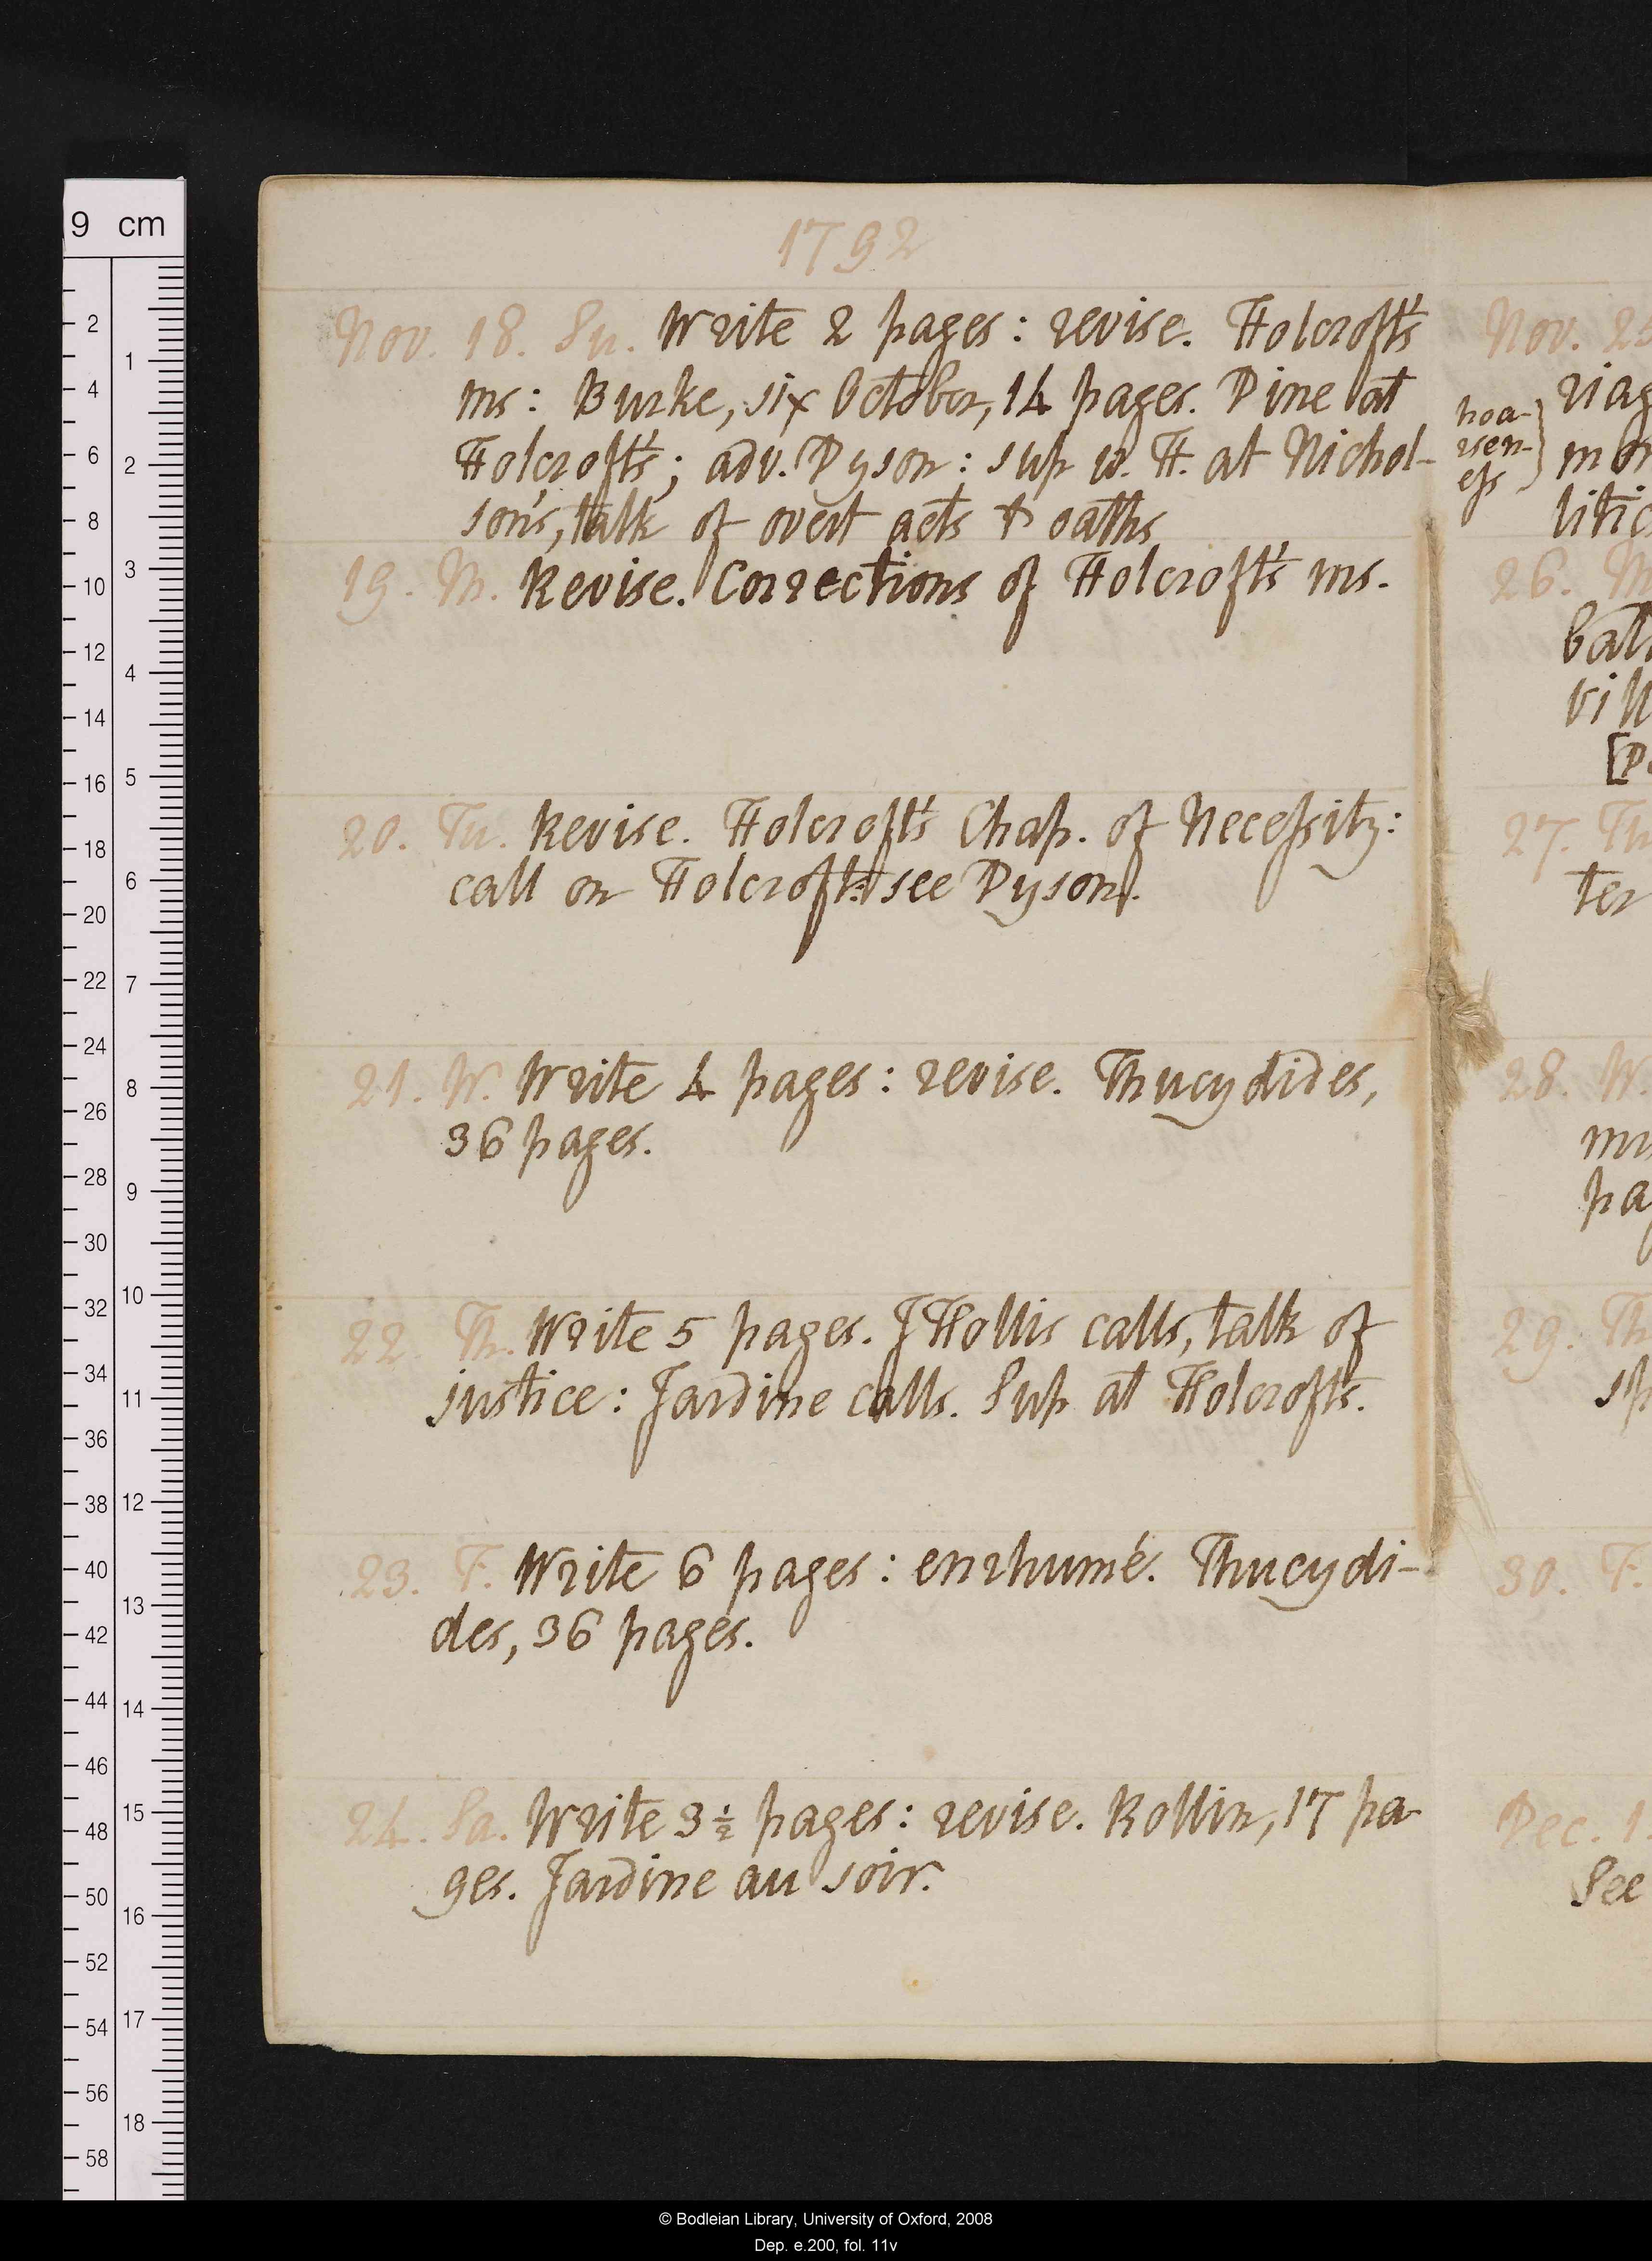 1792
Nov. 18. Su. Write 2 pages: revise. Holcroft's
ms: Burke, six October, 14 pages. Dine at
Holcroft's; adv. Dyson: sup w. H. at Nichol-
son's, talk of overt acts & oaths
19. M. Revise. Corrections of Holcroft's ms.
20. Tu. Revise. Holcroft's Chap. of Necessity:
call on Holcroft: see Dyson.
21. W. Write 4 pages: revise. Thucydides,
36 pages.
22. Th. Write 5 pages. J Hollis calls, talk of
justice: Jardine calls. Sup at Holcroft's.
23. F. Write 6 pages: enrhumé. Thucydi-
des, 36 pages.
24. Sa. Write 3½ pages: revise. Rollin, 17 pa-
ges. Jardine au soir.
Nov. 25
hoa-
rsen-
ess
riag
mor
litic
26. M
bat
vill
[D
27. Tu
ter
28. W.
pag
29. Th
sp
30. F.
Dec. 1
See
9 cm
2
4
6
8
10
12
14
16
18
20
22
24
26
28
30
32
34
36
38
40
42
44
46
48
50
52
54
56
58
1
2
3
4
5
6
7
8
9
10
11
12
13
14
15
16
17
18
© Bodleian Library, University of Oxford, 2008
Dep. e.200, fol. 11v